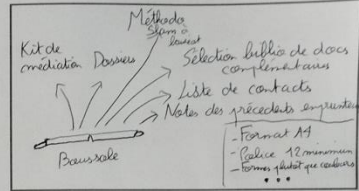 Méthodo
slam o
Kit de
médiation
Dossiers
Sélection biblio de docs
complémentaires
Liste de contacts
Notes des précédents emprunteurs
Baussole
- Format A4
- Police 12 minimum
- Formes plutôt que couleurs
...